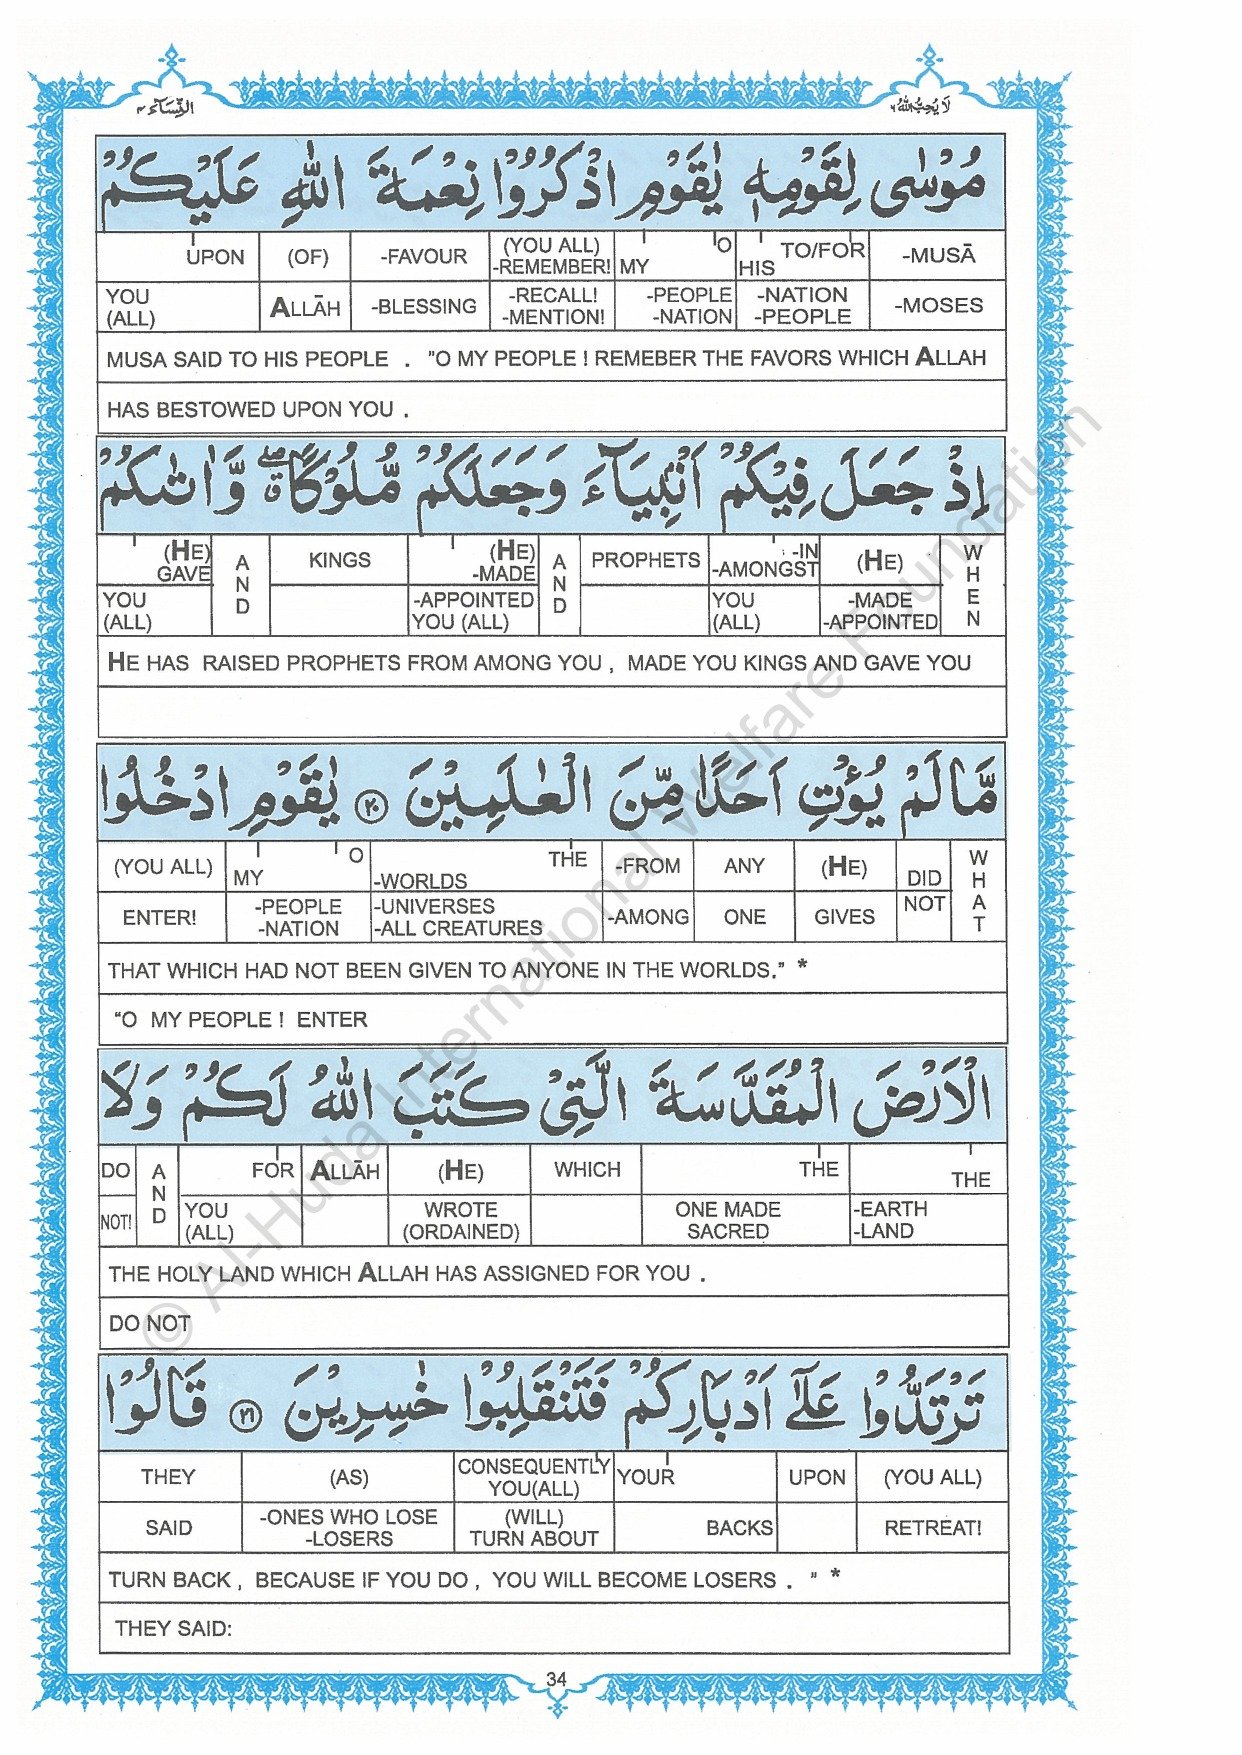 النِّسَآء ٤
لَا يُحِبُّ اللهُ ٦
مُوْسٰى لِقَوْمِهٖ يٰقَوْمِ اذْكُرُوْا نِعْمَةَ اللهِ عَلَيْكُمْ
UPON (OF) -FAVOUR (YOU ALL) -REMEMBER! MY O HIS TO/FOR -MUSĀ
YOU (ALL) ALLĀH -BLESSING -RECALL! -MENTION! -PEOPLE -NATION -NATION -PEOPLE -MOSES
MUSA SAID TO HIS PEOPLE . "O MY PEOPLE ! REMEBER THE FAVORS WHICH ALLAH
HAS BESTOWED UPON YOU .
اِذْ جَعَلَ فِيْكُمْ اَنْۢبِيَآءَ وَجَعَلَكُمْ مُّلُوْكًا ۗ وَّاٰتٰىكُمْ
(HE) GAVE AND KINGS (HE) -MADE AND PROPHETS -IN -AMONGST (HE) WHEN
YOU (ALL) -APPOINTED YOU (ALL) YOU (ALL) -MADE -APPOINTED
HE HAS RAISED PROPHETS FROM AMONG YOU , MADE YOU KINGS AND GAVE YOU
مَّا لَمْ يُؤْتِ اَحَدًا مِّنَ الْعٰلَمِيْنَ ٢٠ يٰقَوْمِ ادْخُلُوا
(YOU ALL) MY O THE -WORLDS -FROM ANY (HE) DID WHAT
ENTER! -PEOPLE -NATION -UNIVERSES -ALL CREATURES -AMONG ONE GIVES NOT
THAT WHICH HAD NOT BEEN GIVEN TO ANYONE IN THE WORLDS." *
"O MY PEOPLE ! ENTER
الْاَرْضَ الْمُقَدَّسَةَ الَّتِيْ كَتَبَ اللهُ لَكُمْ وَلَا
DO AND FOR ALLĀH (HE) WHICH THE THE
NOT! YOU (ALL) WROTE (ORDAINED) ONE MADE SACRED -EARTH -LAND
THE HOLY LAND WHICH ALLAH HAS ASSIGNED FOR YOU .
DO NOT
تَرْتَدُّوْا عَلٰٓى اَدْبَارِكُمْ فَتَنْقَلِبُوْا خٰسِرِيْنَ ٢١ قَالُوْا
THEY (AS) CONSEQUENTLY YOU(ALL) YOUR UPON (YOU ALL)
SAID -ONES WHO LOSE -LOSERS (WILL) TURN ABOUT BACKS RETREAT!
TURN BACK , BECAUSE IF YOU DO , YOU WILL BECOME LOSERS . " *
THEY SAID:
34
© Al-Huda International Welfare Foundation